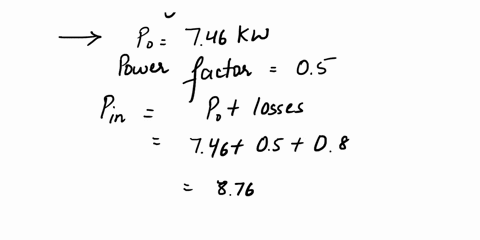 → P₀ = 7.46 KW
Power factor = 0.5
Pin = P₀ + losses
= 7.46 + 0.5 + 0.8
= 8.76